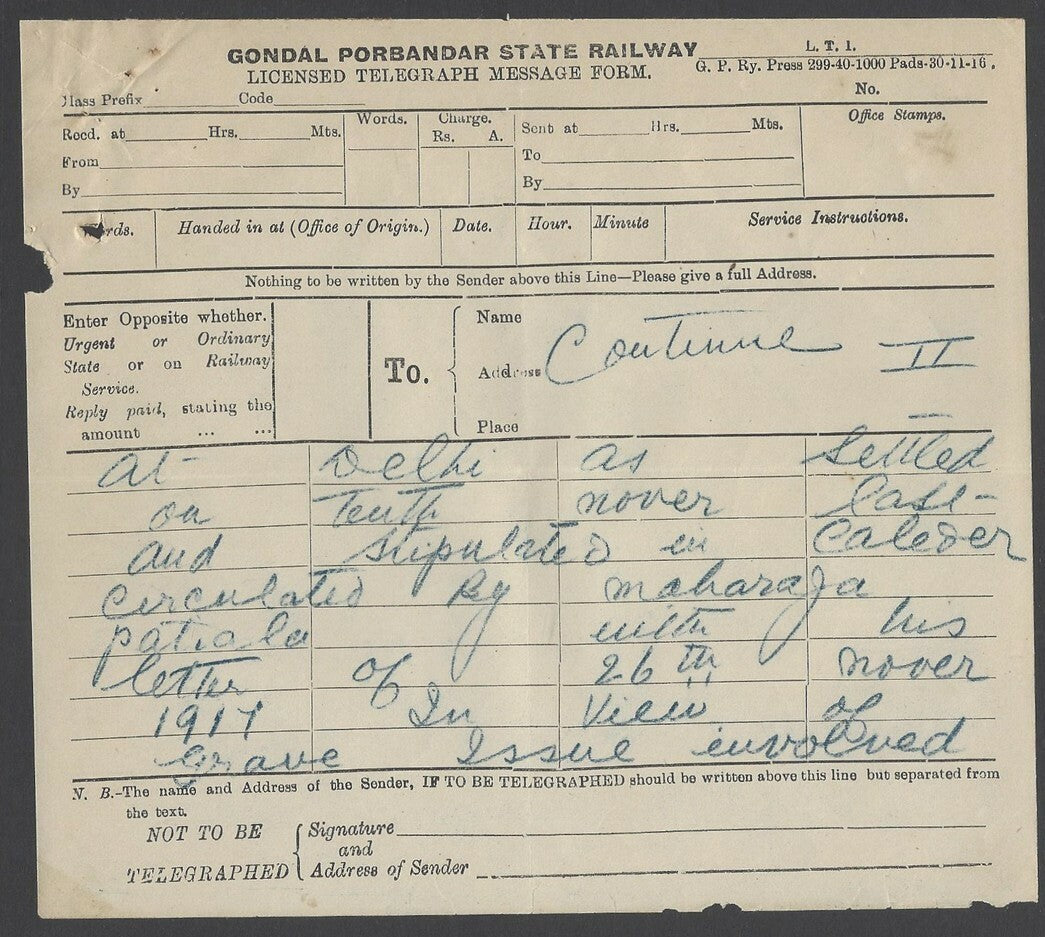 GONDAL PORBANDAR STATE RAILWAY
LICENSED TELEGRAPH MESSAGE FORM.
L. T. 1.
G. P. Ry. Press 299-40-1000 Pads-30-11-16.
Class Prefix Code No.
Recd. at Hrs. Mts.
From
By
Words.
Charge.
Rs. A.
Sent at Hrs. Mts.
To
By
Office Stamps.
Words. Handed in at (Office of Origin.) Date. Hour. Minute Service Instructions.
Nothing to be written by the Sender above this Line—Please give a full Address.
Enter Opposite whether.
Urgent or Ordinary
State or on Railway
Service.
Reply paid, stating the
amount ... ...
To.
Name
Address
Place
Continue II
at Delhi as settled
on Tenth nover last
and stipulated in Caleder
circulated By maharaja
patiala with his
letter of 26th nover
1917 In View of
Grave Issue involved
N. B.-The name and Address of the Sender, IF TO BE TELEGRAPHED should be written above this line but separated from
the text.
NOT TO BE
TELEGRAPHED
Signature
and
Address of Sender